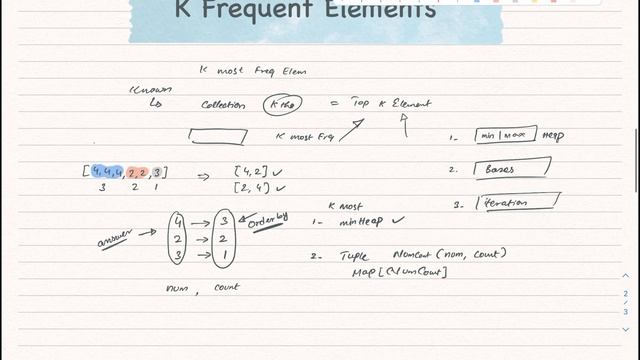 K Frequent Elements
K most Freq Elem
Known
Collection K the = Top K Element
K most Freq
1- min | max Heap
2. bases
3- iteration
[4,4,4,2,2,3] ⇒ [4,2] ✓
3 2 1 [2,4] ✓
answer → 4 → 3 Order by
2 → 2
3 → 1
num, count
K most
1- minHeap ✓
2- Tuple NumCount (num, count)
Map [NumCount]
2
/
3